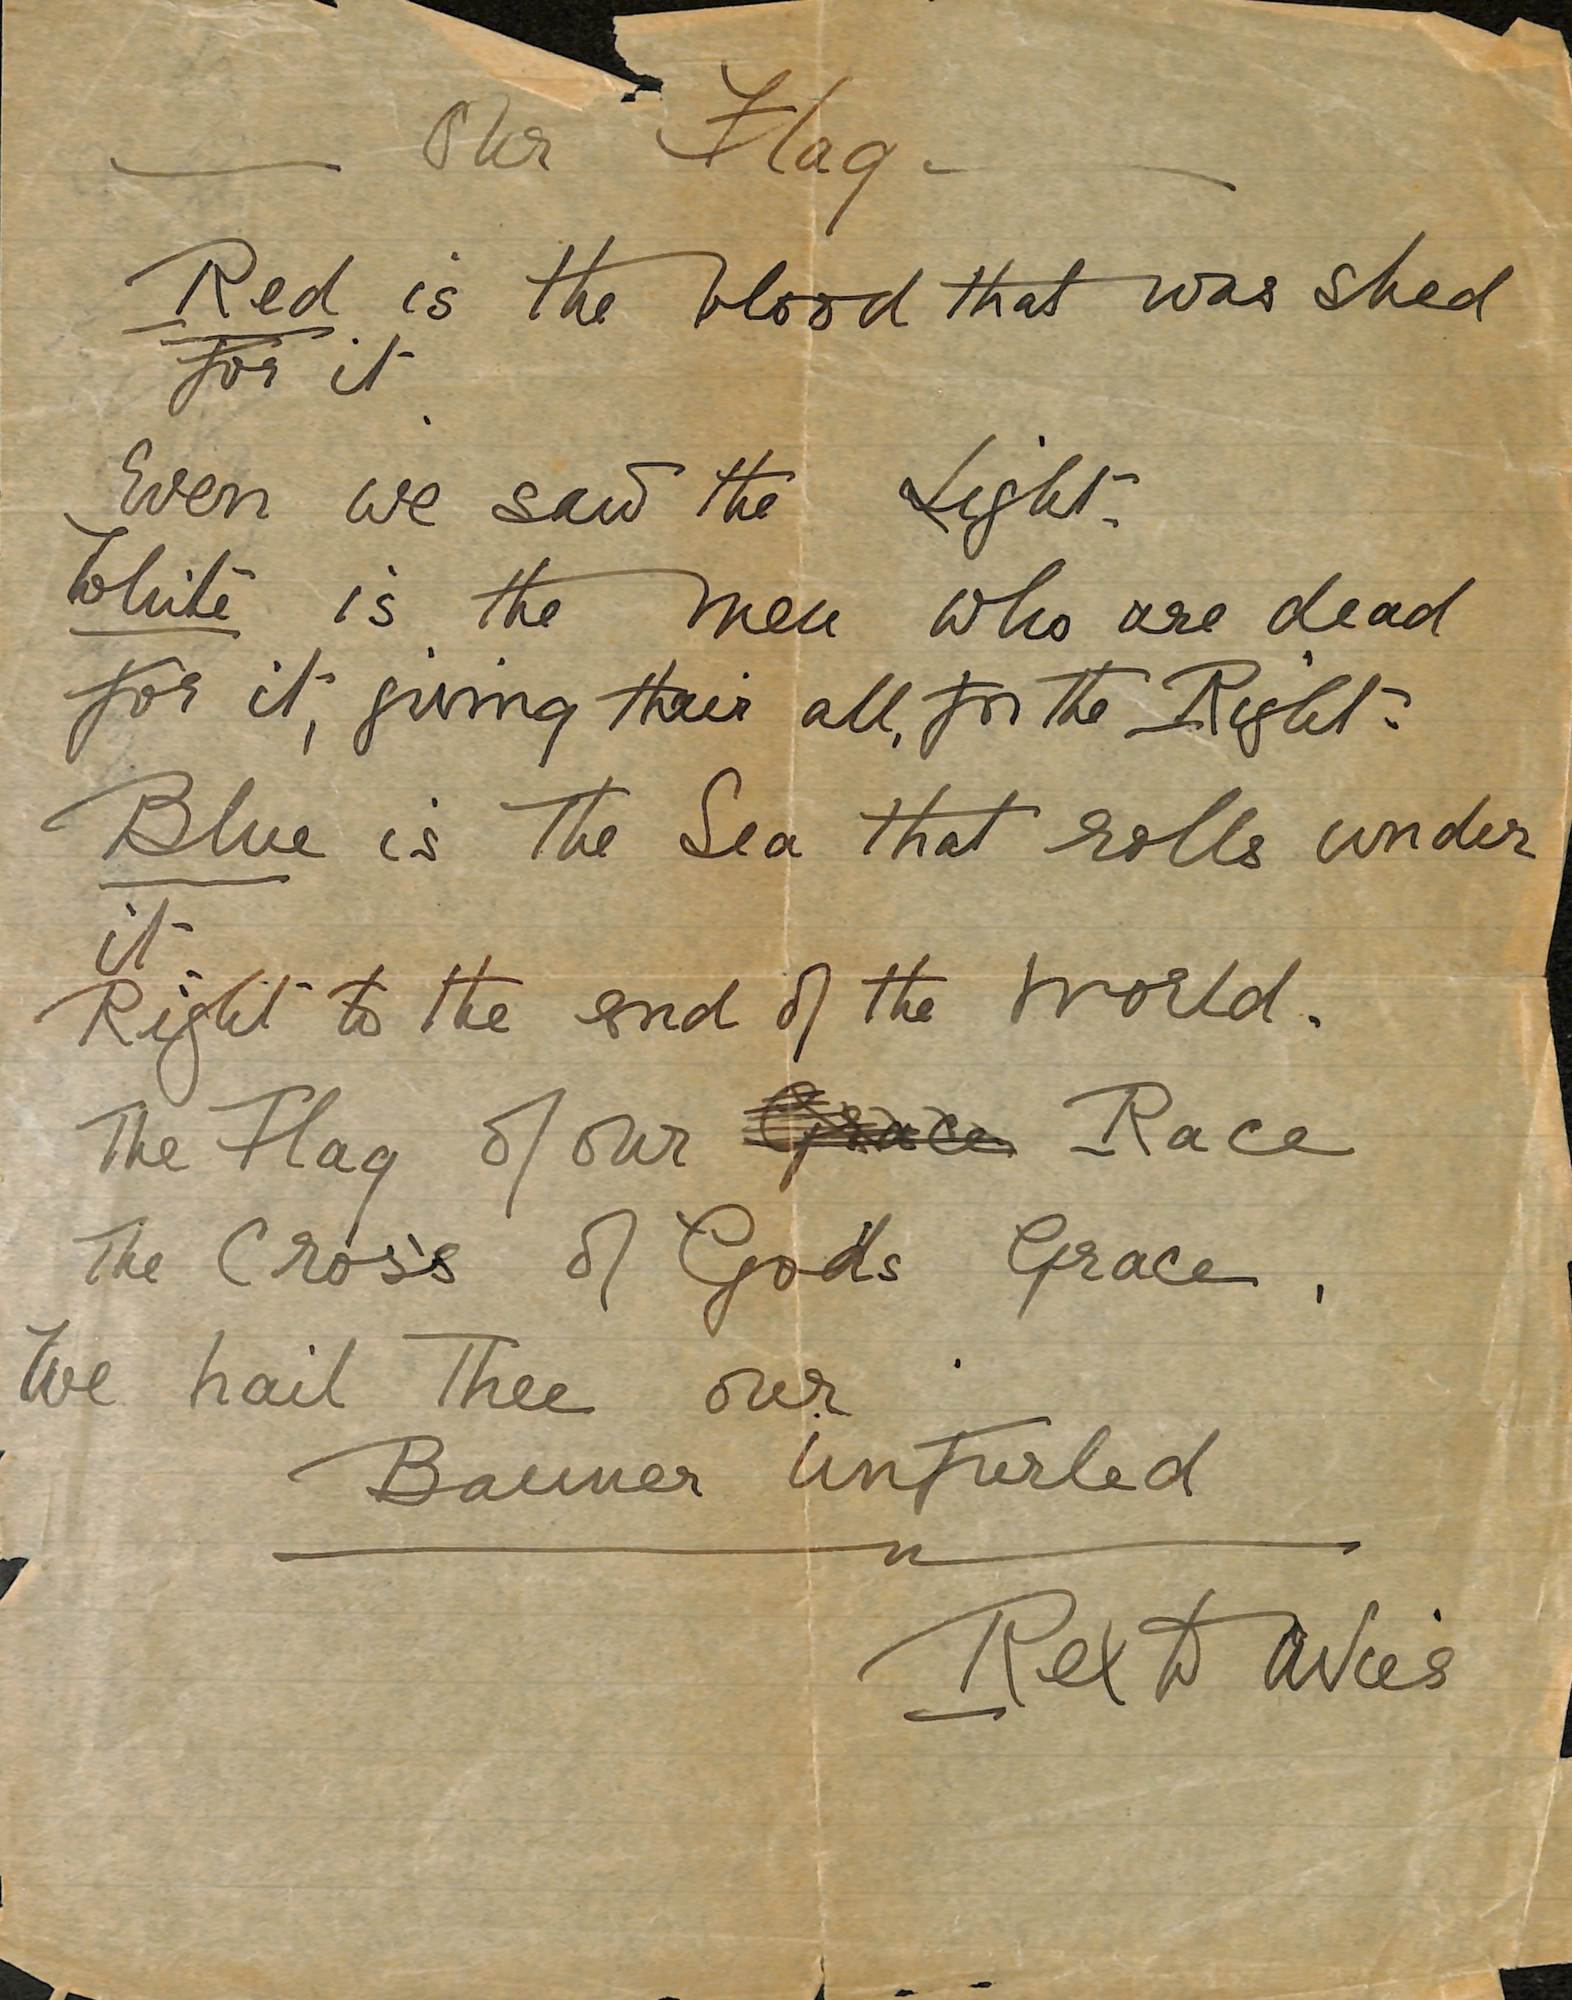 Our Flag
Red is the blood that was shed
for it
Even we saw the Light
White is the men who are dead
for it, giving their all, for the Right
Blue is the Sea that rolls under
it
Right to the end of the World.
The Flag of our Grace Race
The Cross of Gods Grace,
We hail Thee our
Banner unfurled
Rex Davies